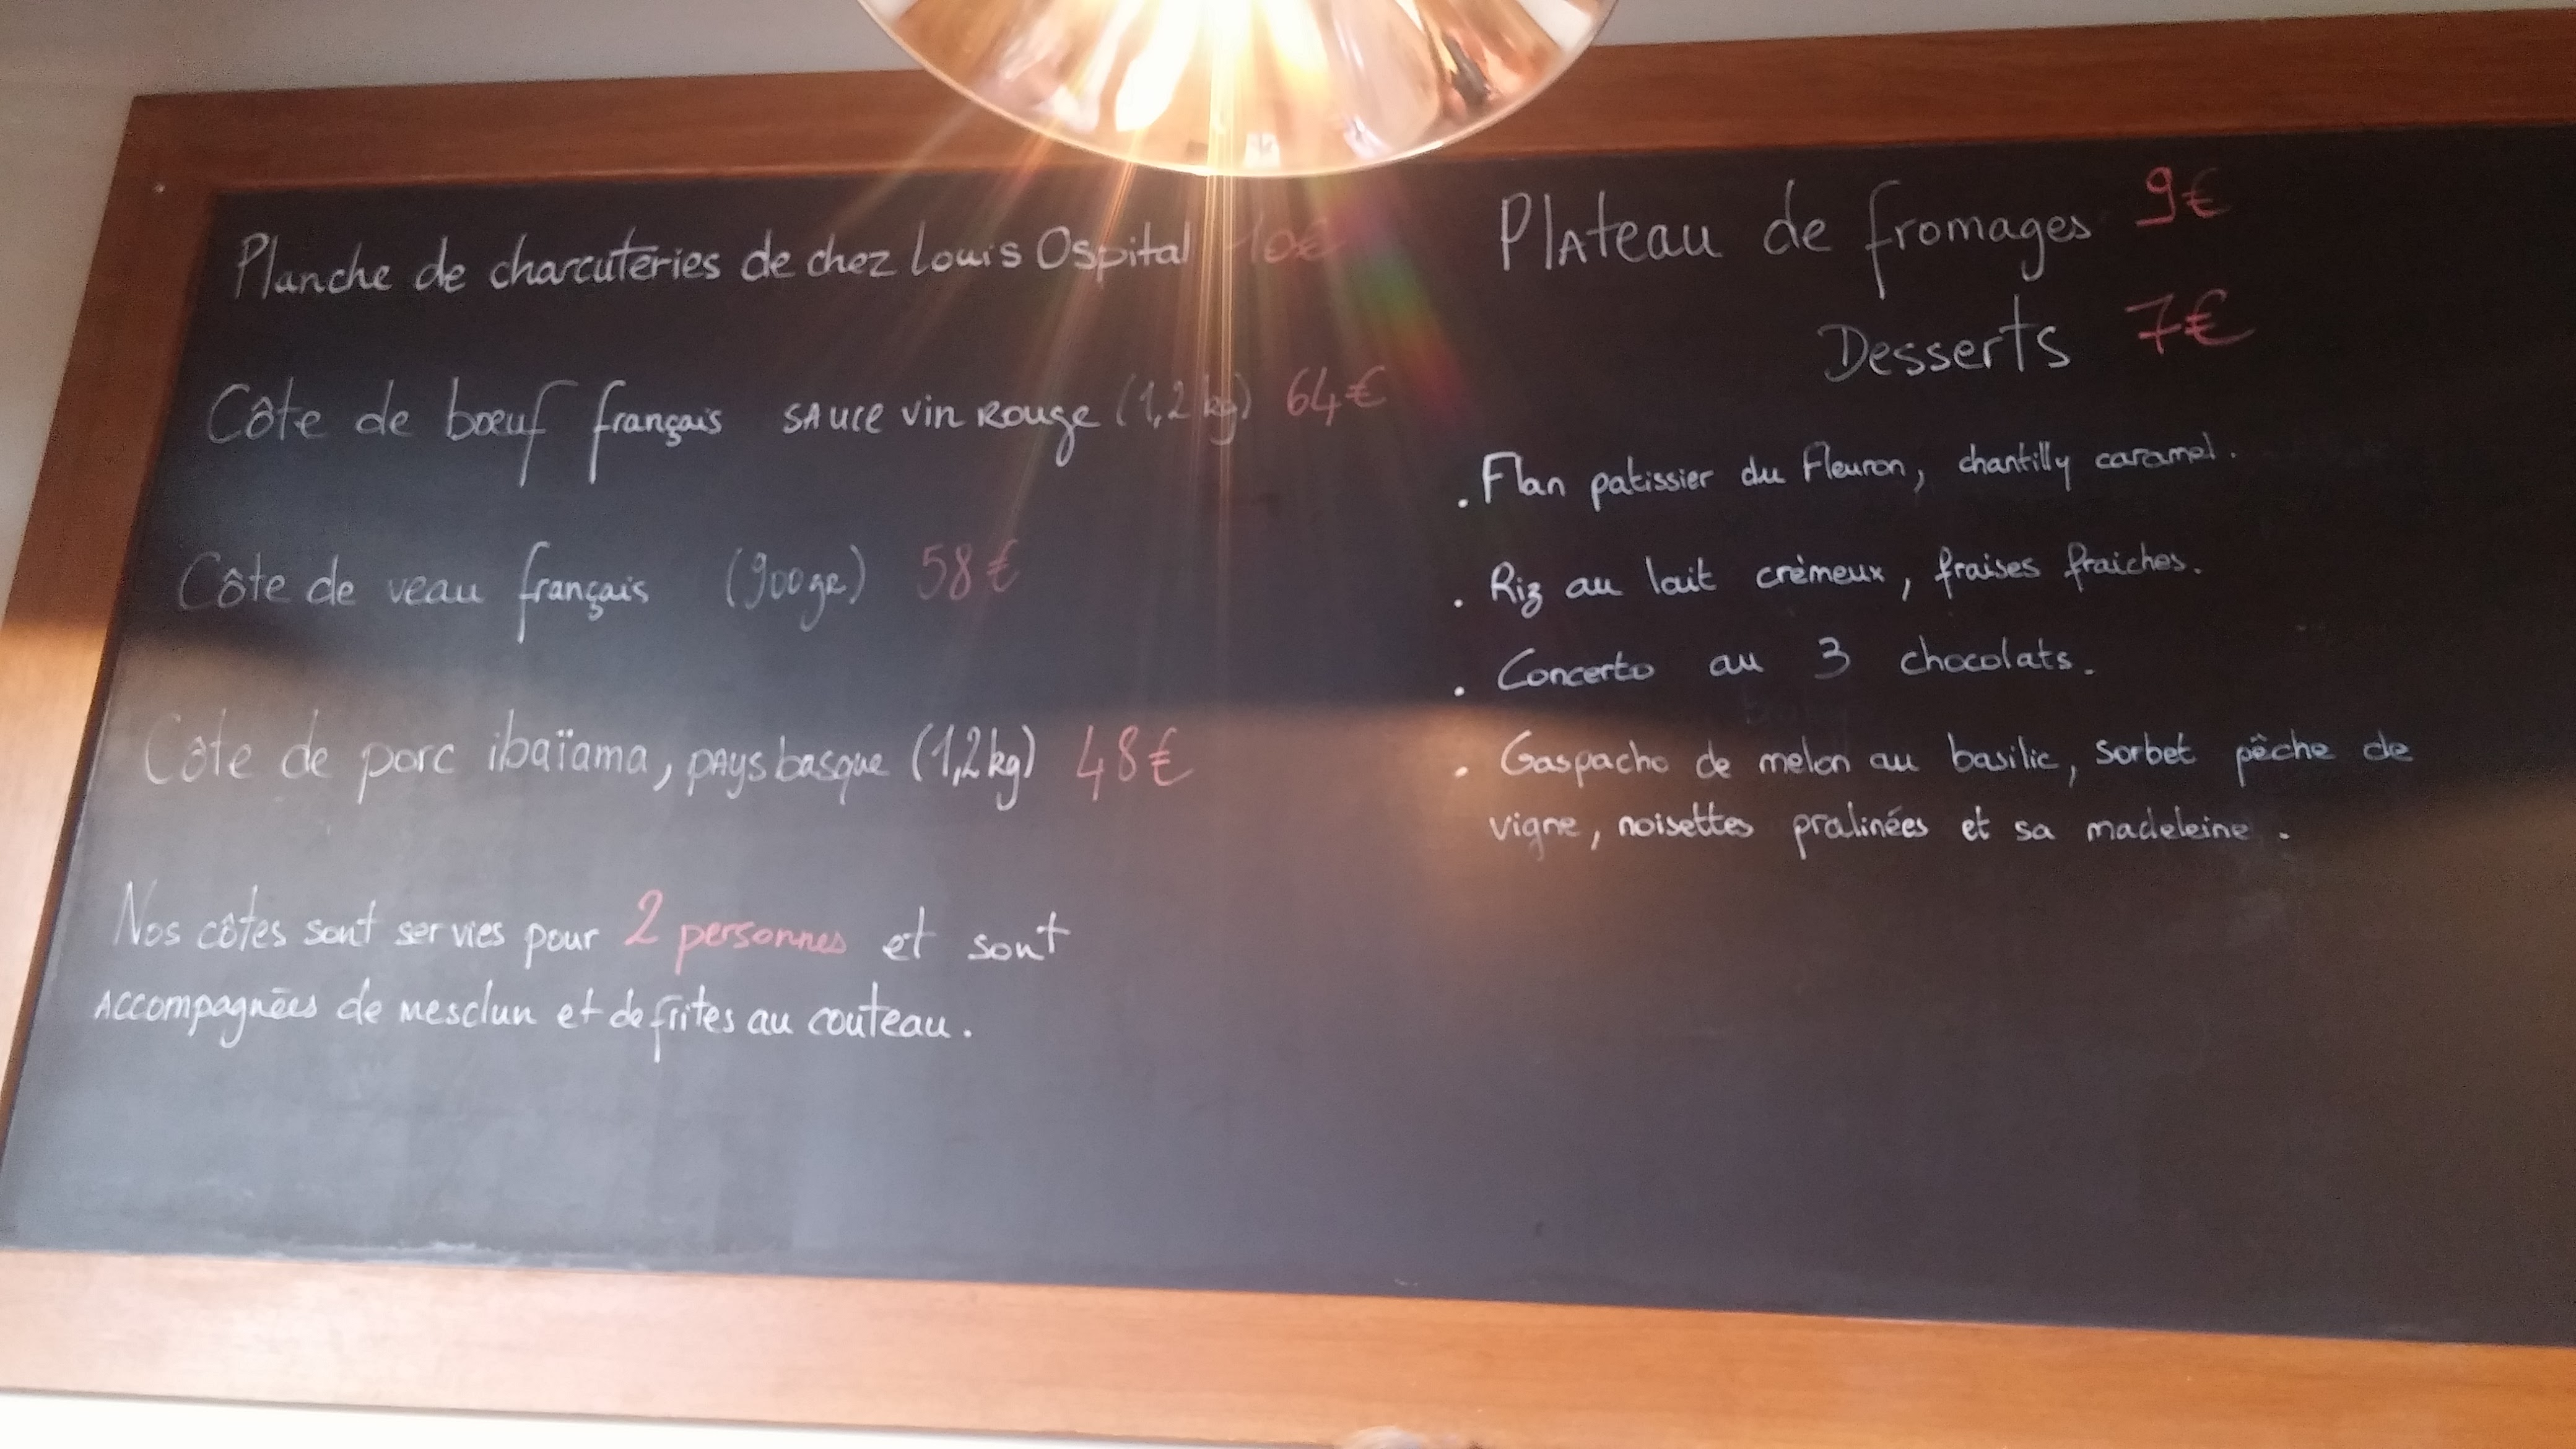 Planche de charcuteries de chez Louis Ospital 10€
Côte de bœuf français sauce vin rouge (1,2 kg) 64€
Côte de veau français (900 gr) 58€
Côte de porc ibaïama, pays basque (1,2 kg) 48€
Nos côtes sont servies pour 2 personnes et sont
Accompagnées de mesclun et de frites au couteau.
Plateau de fromages 9€
Desserts 7€
. Flan patissier du Fleuron, chantilly caramel.
. Riz au lait crèmeux, fraises fraiches.
. Concerto au 3 chocolats.
. Gaspacho de melon au basilic, sorbet pêche de
vigne, noisettes pralinées et sa madeleine.